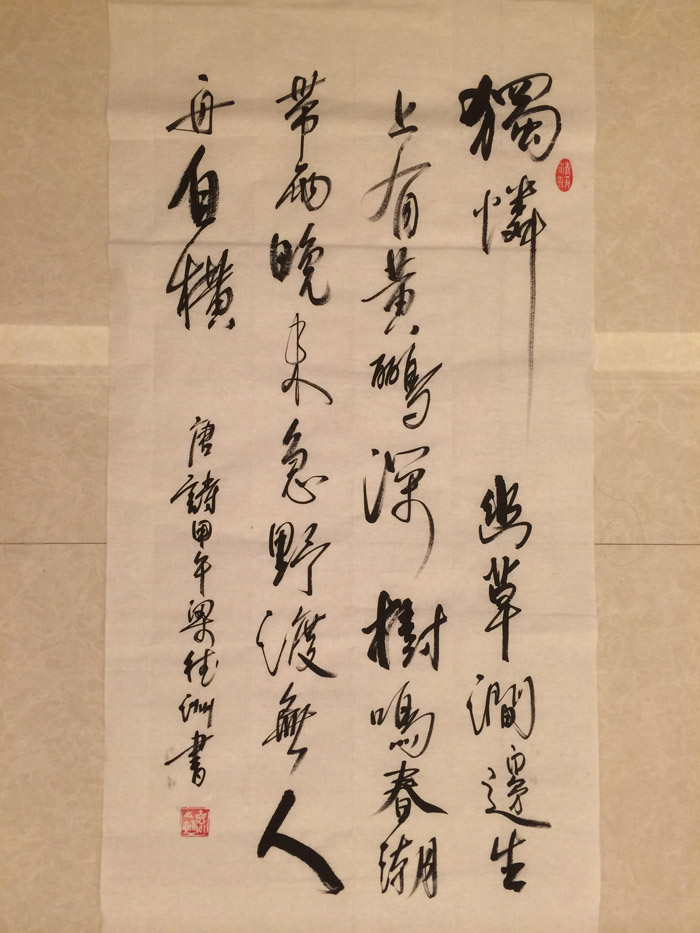 獨憐幽草澗邊生
上有黃鸝深樹鳴春潮
帶雨晚來急野渡無人
舟自橫
唐詩甲午梁洲書